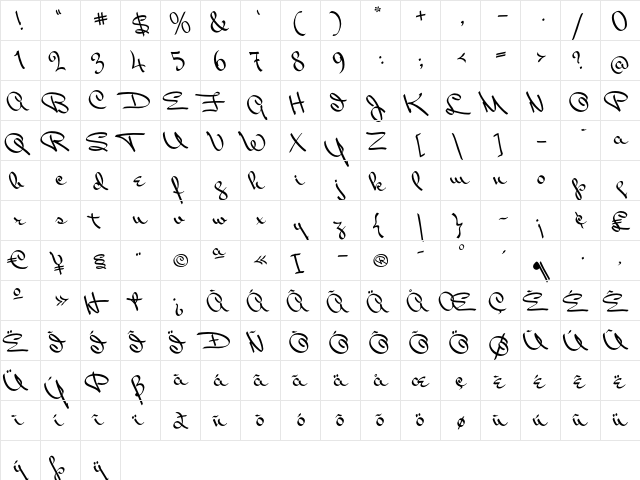 ! " # $ % & ' ( ) * + , - . / 0
1 2 3 4 5 6 7 8 9 : ; < = > ? @
A B C D E F G H I J K L M N O P
Q R S T U V W X Y Z [ \ ] - a
b c d e f g h i j k l m n o p q
r s t u v w x y z { | } ~ ¡ ¢ £
€ ¥ § ¨ © ª « I ¯ ® ¯ ° ´ ¶ · ¸
º » ¿ À Á Â Ã Ä Å Æ Ç È É Ê
Ë Ì Í Î Ï Ð Ñ Ò Ó Ô Õ Ö Ø Ù Ú Û
Ü Ý Þ ß à á â ã ä å æ ç è é ê ë
ì í î ï ñ ò ó ô õ ö ø ù ú û ü
ý þ ÿ